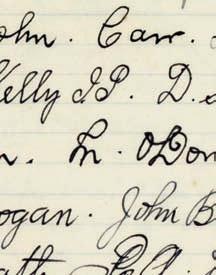 ohn. Carr.
Kelly JP. D.
n. M. ODon
ogan. John B